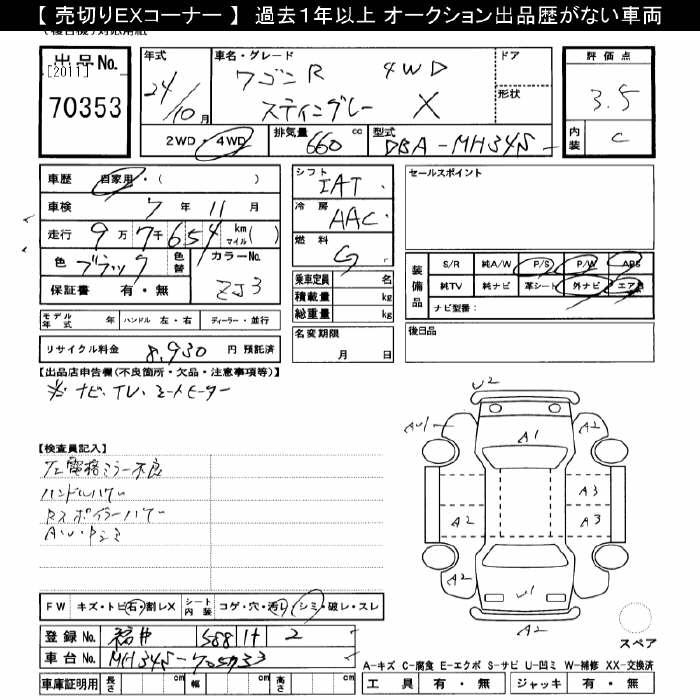 【 売切りEXコーナー 】 過去1年以上 オークション出品歴がない車両
出品No.
[2011]
70353
年式
24/10月
車名・グレード
ワゴンR 4WD
スティングレー X
ドア
形状
評価点
3.5
内装
C
2WD・4WD
排気量 660 cc
型式 DBA-MH34S
車歴 自家用・( )
車検 7年 11月
走行 9万7千654 km マイル( )
色 ブラック 色替
カラーNo. ZJ3
保証書 有・無
シフト IAT
冷房 AAC
燃料 G
乗車定員 名
積載量 kg
総重量 kg
セールスポイント
装備品
S/R 純A/W P/S P/W ABS
純TV 純ナビ 革シート 外ナビ エアB
ナビ型番:
モデル年式 年 ハンドル 左・右 ディーラー・並行
名変期限
月 日
後日品
リサイクル料金 8,930 円 預託済
【出品店申告欄(不良箇所・欠品・注意事項等)】
※ ナビ、TV、シートヒーター
U2
AU1
A2
A1
【検査員記入】
左電格ミラー不良
ハンドルハゲ
A3
A2
A3
A・U・Pシミ
A2
A2
U1
FW キズ・トビ石・割レX シート内装 コゲ・穴・汚レ・シミ・破レ・スレ
登録No. 福井 588 け 2
車台No. MH34S-
スペア
A-キズ C-腐食 E-エクボ S-サビ U-凹ミ W-補修 XX-交換済
車庫証明用 長さ cm 幅 cm 高さ cm
工具 有・無 ジャッキ 有・無